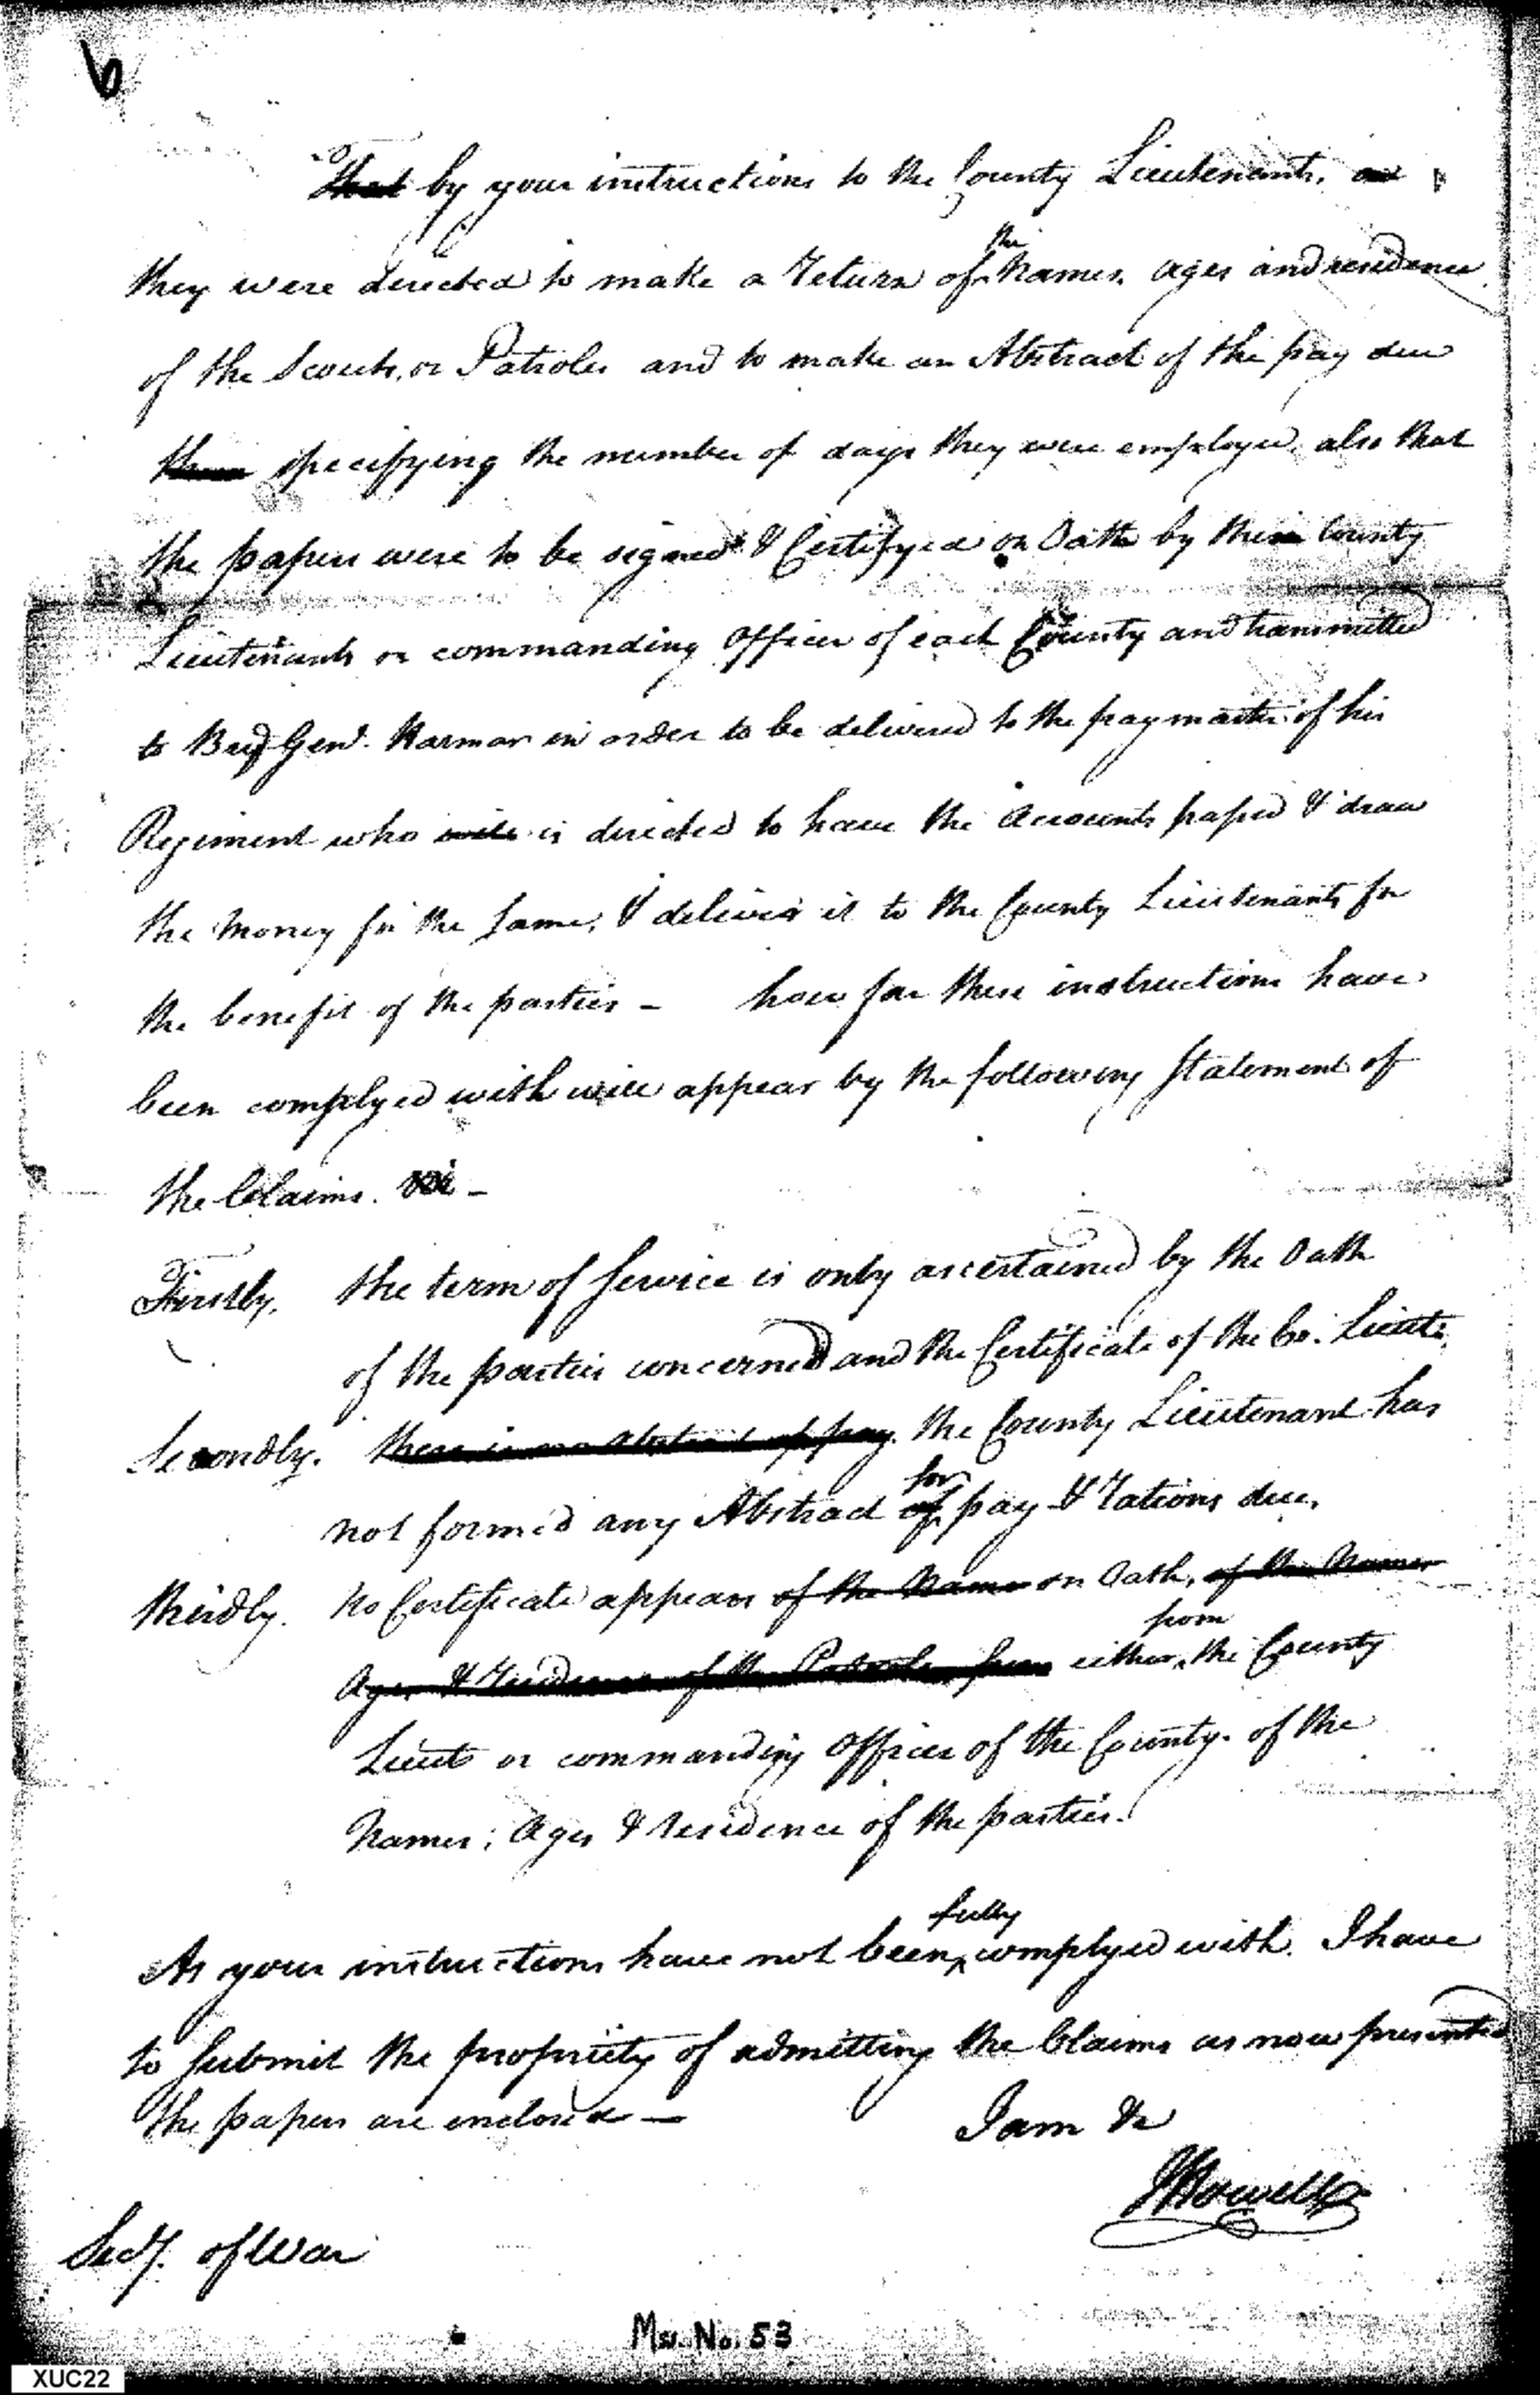 6
~~that~~ by your instructions to the County Lieutenants,
they were directed to make a return of the Names, ages and residence
of the Scouts, or Patroles and to make an Abstract of the pay due
~~them~~ specifying the number of days they were employed, also that
the papers were to be signed & Certifyed on Oath by the County
Lieutenants or commanding Officer of each County and transmitted
to Brig Genl. Harmar in order to be delivered to the paymaster of his
Regiment who ~~will~~ is directed to have the Accounts passed & draw
the money for the same, & deliver it to the County Lieutenants for
the benefit of the parties – how far these instructions have
been complyed with will appear by the following Statement of
the Claims. –
Firstly. the term of Service is only ascertained by the Oath
of the parties concerned and the Certificate of the Co. Lieuts.
Secondly. ~~there is no abstract of pay~~. the County Lieutenant has
not form'd any Abstract ~~of~~ for pay & rations due.
thirdly. No Certificate appears ~~of the Name~~ on Oath, ~~of the Names~~
~~Ages & residence of the Patroles from~~ either from the County
Lieuts or commanding Officer of the County. of the
Names; Ages & residence of the parties.
As your instructions have not been fully complyed with. I have
to submit the propriety of admitting the Claims as now presented
the papers are enclosed —
I am &c
JHowell
Secy. of War
Ms. No. 53
XUC22